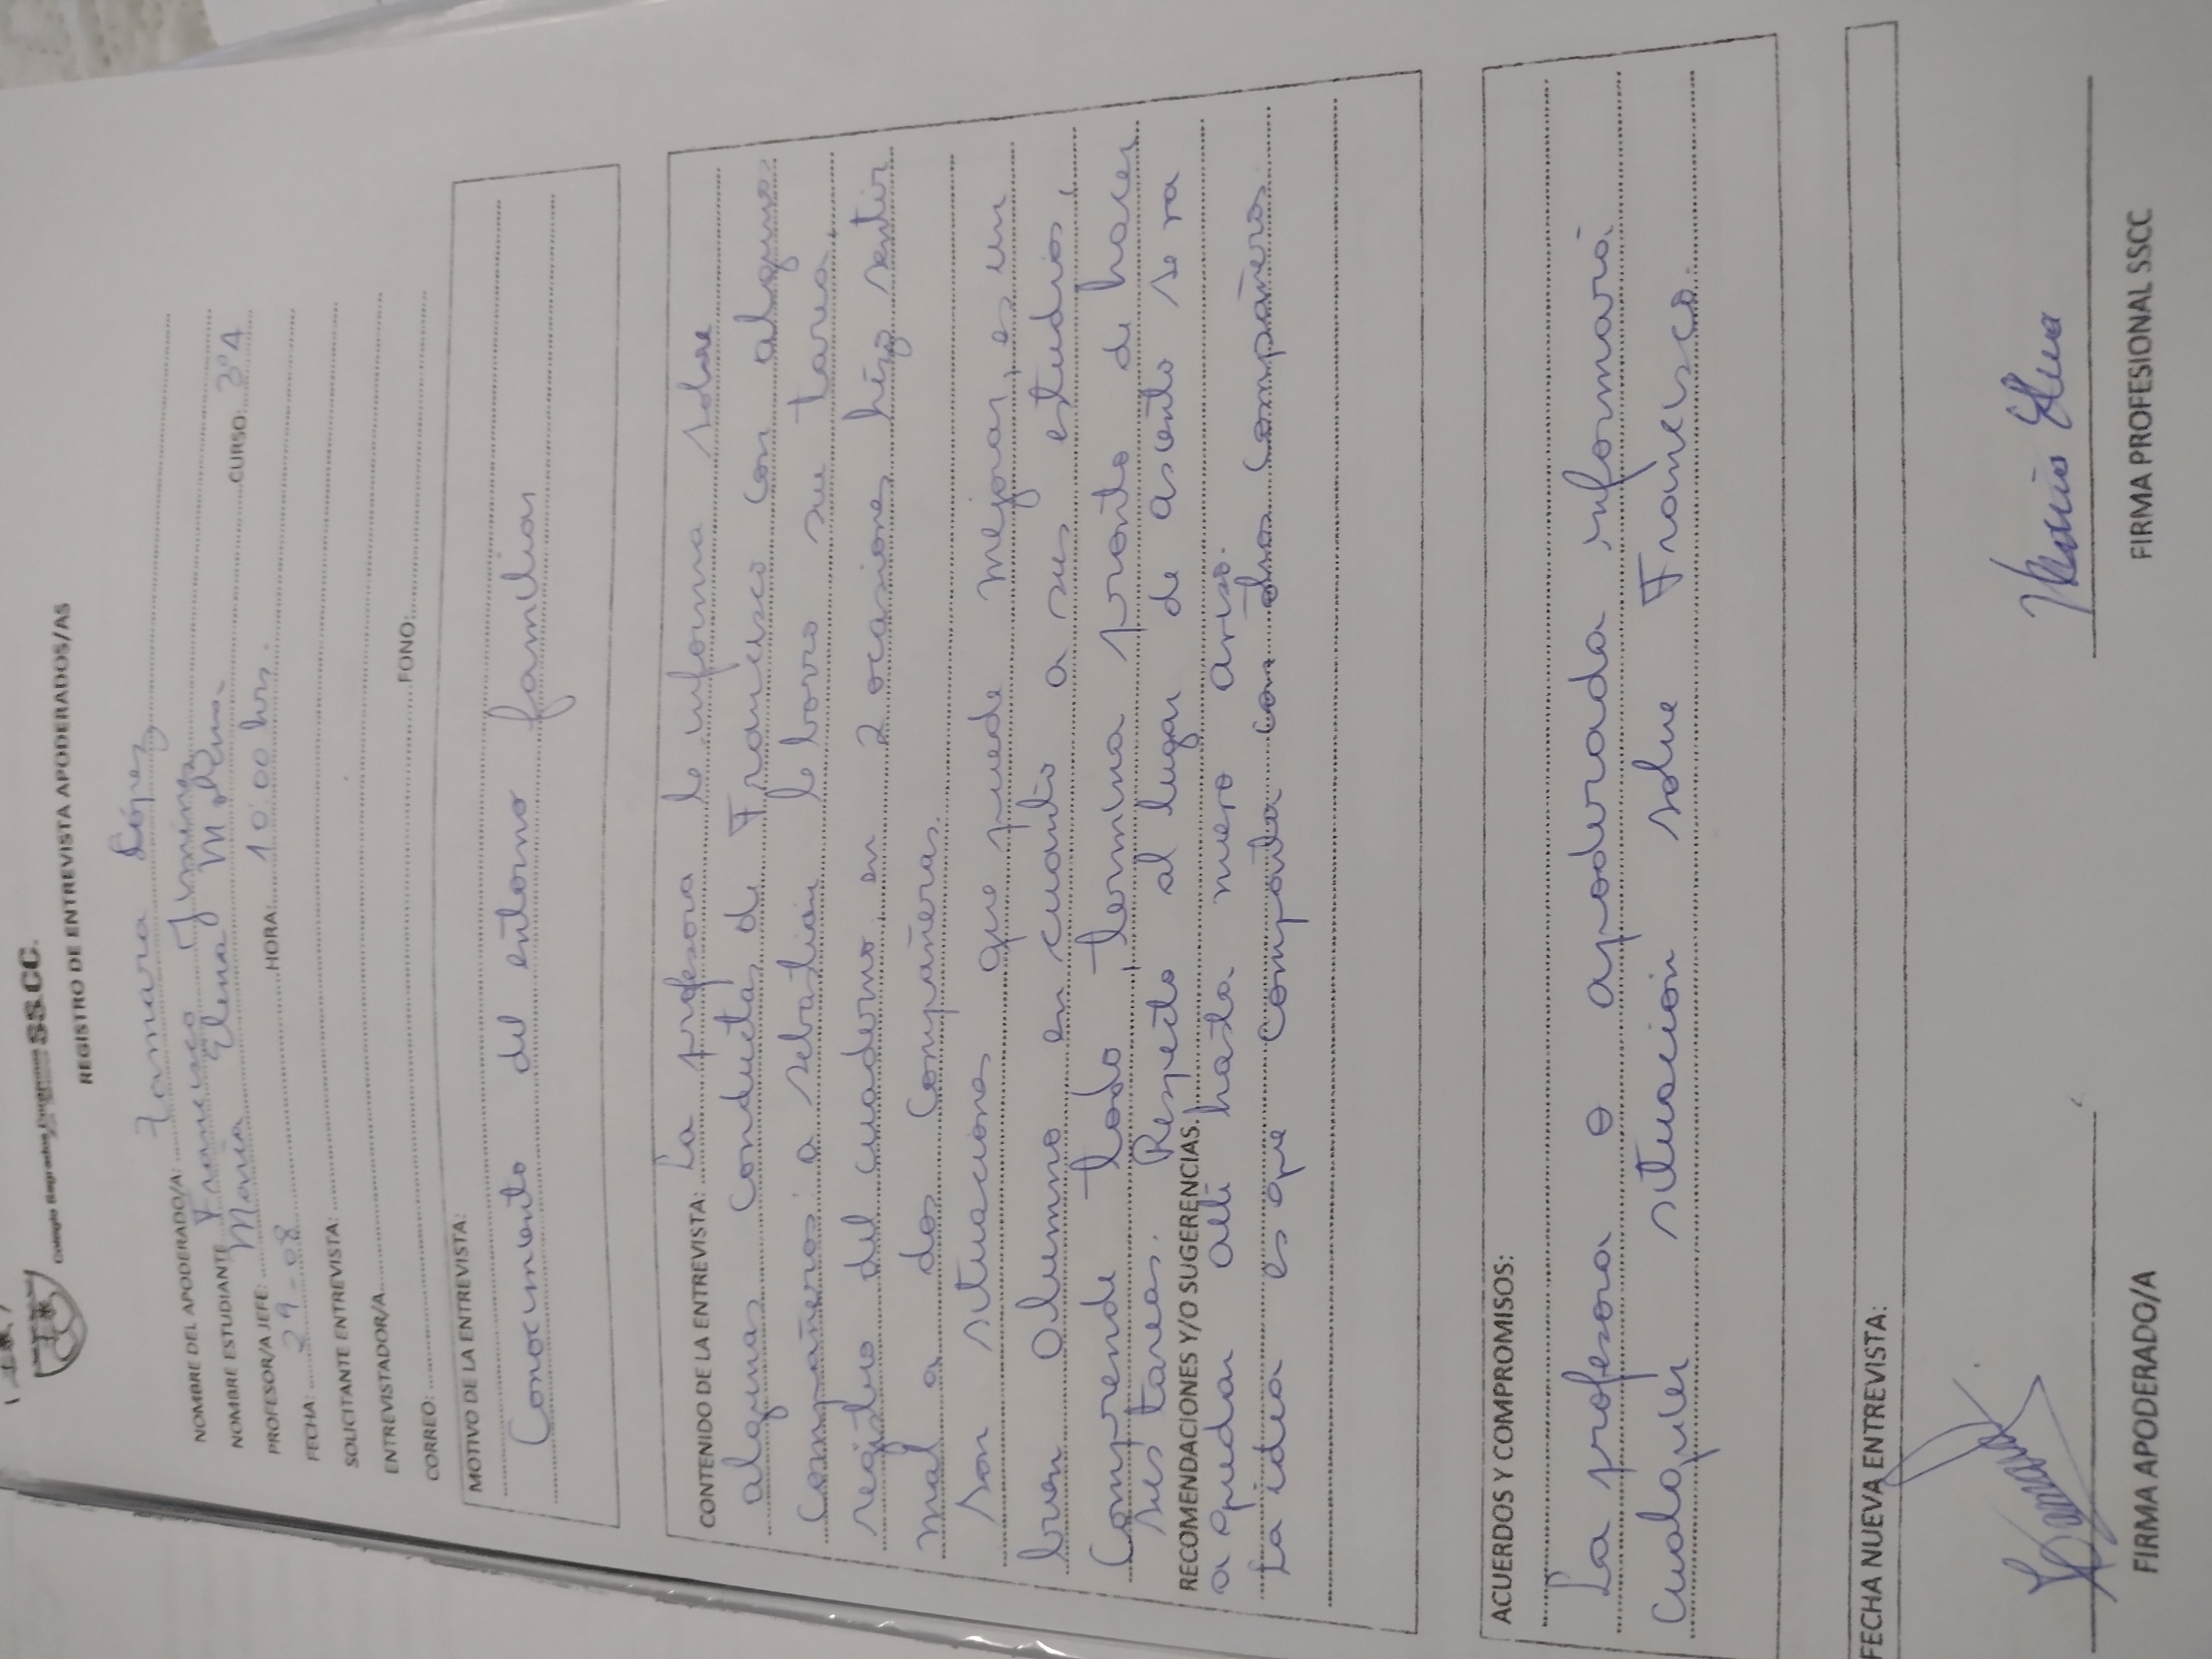 SS.CC.
REGISTRO DE ENTREVISTA APODERADOS/AS
NOMBRE DEL APODERADO/A: Tamara López
NOMBRE ESTUDIANTE Francisco Jiménez
PROFESOR/A JEFE: María Elena M CURSO: 3°A
FECHA: 29-08 HORA: 10:00 hrs.
SOLICITANTE ENTREVISTA:
ENTREVISTADOR/A
CORREO: FONO:
MOTIVO DE LA ENTREVISTA:
Conocimiento del entorno familiar
CONTENIDO DE LA ENTREVISTA: La profesora le informa sobre
algunas conductas de Francisco con algunos
compañeros: a sebastián le borro su tarea,
registro del cuaderno, en 2 ocasiones hizo sentir
mal a dos compañeras.
son situaciones que puede mejorar, es un
buen alumno en cuanto a sus estudios,
Comprende todo termina pronto de hacer
sus tareas. Respecto al lugar de asiento se va
RECOMENDACIONES Y/O SUGERENCIAS.
a quedar allí hasta nuevo aviso.
La idea es que comparta con otros compañeros.
ACUERDOS Y COMPROMISOS:
La profesora o apoderada informará
Cualquier situación sobre Francisco.
FECHA NUEVA ENTREVISTA:
María Elena
FIRMA APODERADO/A FIRMA PROFESIONAL SSCC